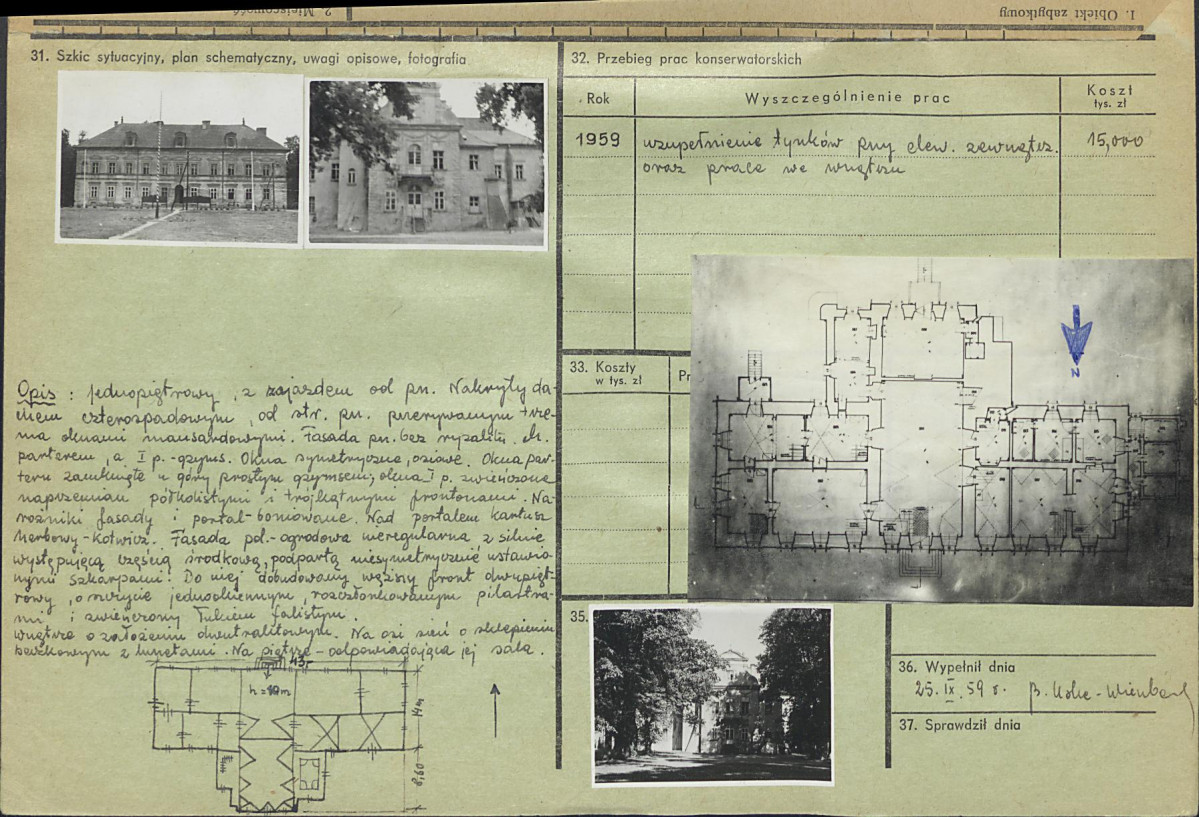 1. Obiekt zabytkowy
2. Miejscowość
31. Szkic sytuacyjny, plan schematyczny, uwagi opisowe, fotografia
Opis: jednopiętrowy, z zajazdem od pn. Nakryty da-
chem czterospadowym, od str. pn. przerywanym trze-
ma oknami mansardowymi. Fasada pn. bez ryzalitu.
parterem a I p. - gzyms. Okna symetryczne, osiowe. Okna par-
teru zamknięte u góry prostym gzymsem; okna I p. zwieńczone
naprzemian półkolistymi i trójkątnymi frontonami. Na-
rożniki fasady i portal - boniowane. Nad portalem kartusz
herbowy - Kotwicz. Fasada poł. - ogrodowa nieregularna z silnie
występującą częścią środkową, podpartą niesymetrycznie ustawio-
nymi szkarpami. Do niej dobudowany węższy front dwupięt-
rowy, o szczycie jednookiennym, rozczłonkowanym pilastra-
mi i zwieńczony łukiem falistym.
Wnętrze o założeniu dwutraktowym. Na osi sień o sklepieniu
beczkowym z lunetami. Na piętrze - odpowiadająca jej sala.
43
h = 10 m
14 m
8,60
32. Przebieg prac konserwatorskich
Rok
Wyszczególnienie prac
Koszt
tys. zł
1959
uzupełnienie tynków przy elew. zewnętrz.
15,000
oraz prace we wnętrzu
N
33. Koszty
w tys. zł
35.
36. Wypełnił dnia
25. IX. 59 r.
37. Sprawdził dnia